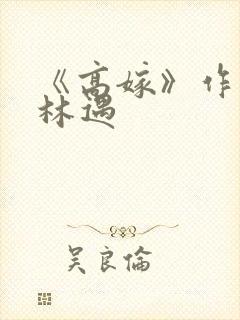 《高嫁》作
林遇
吴良伦